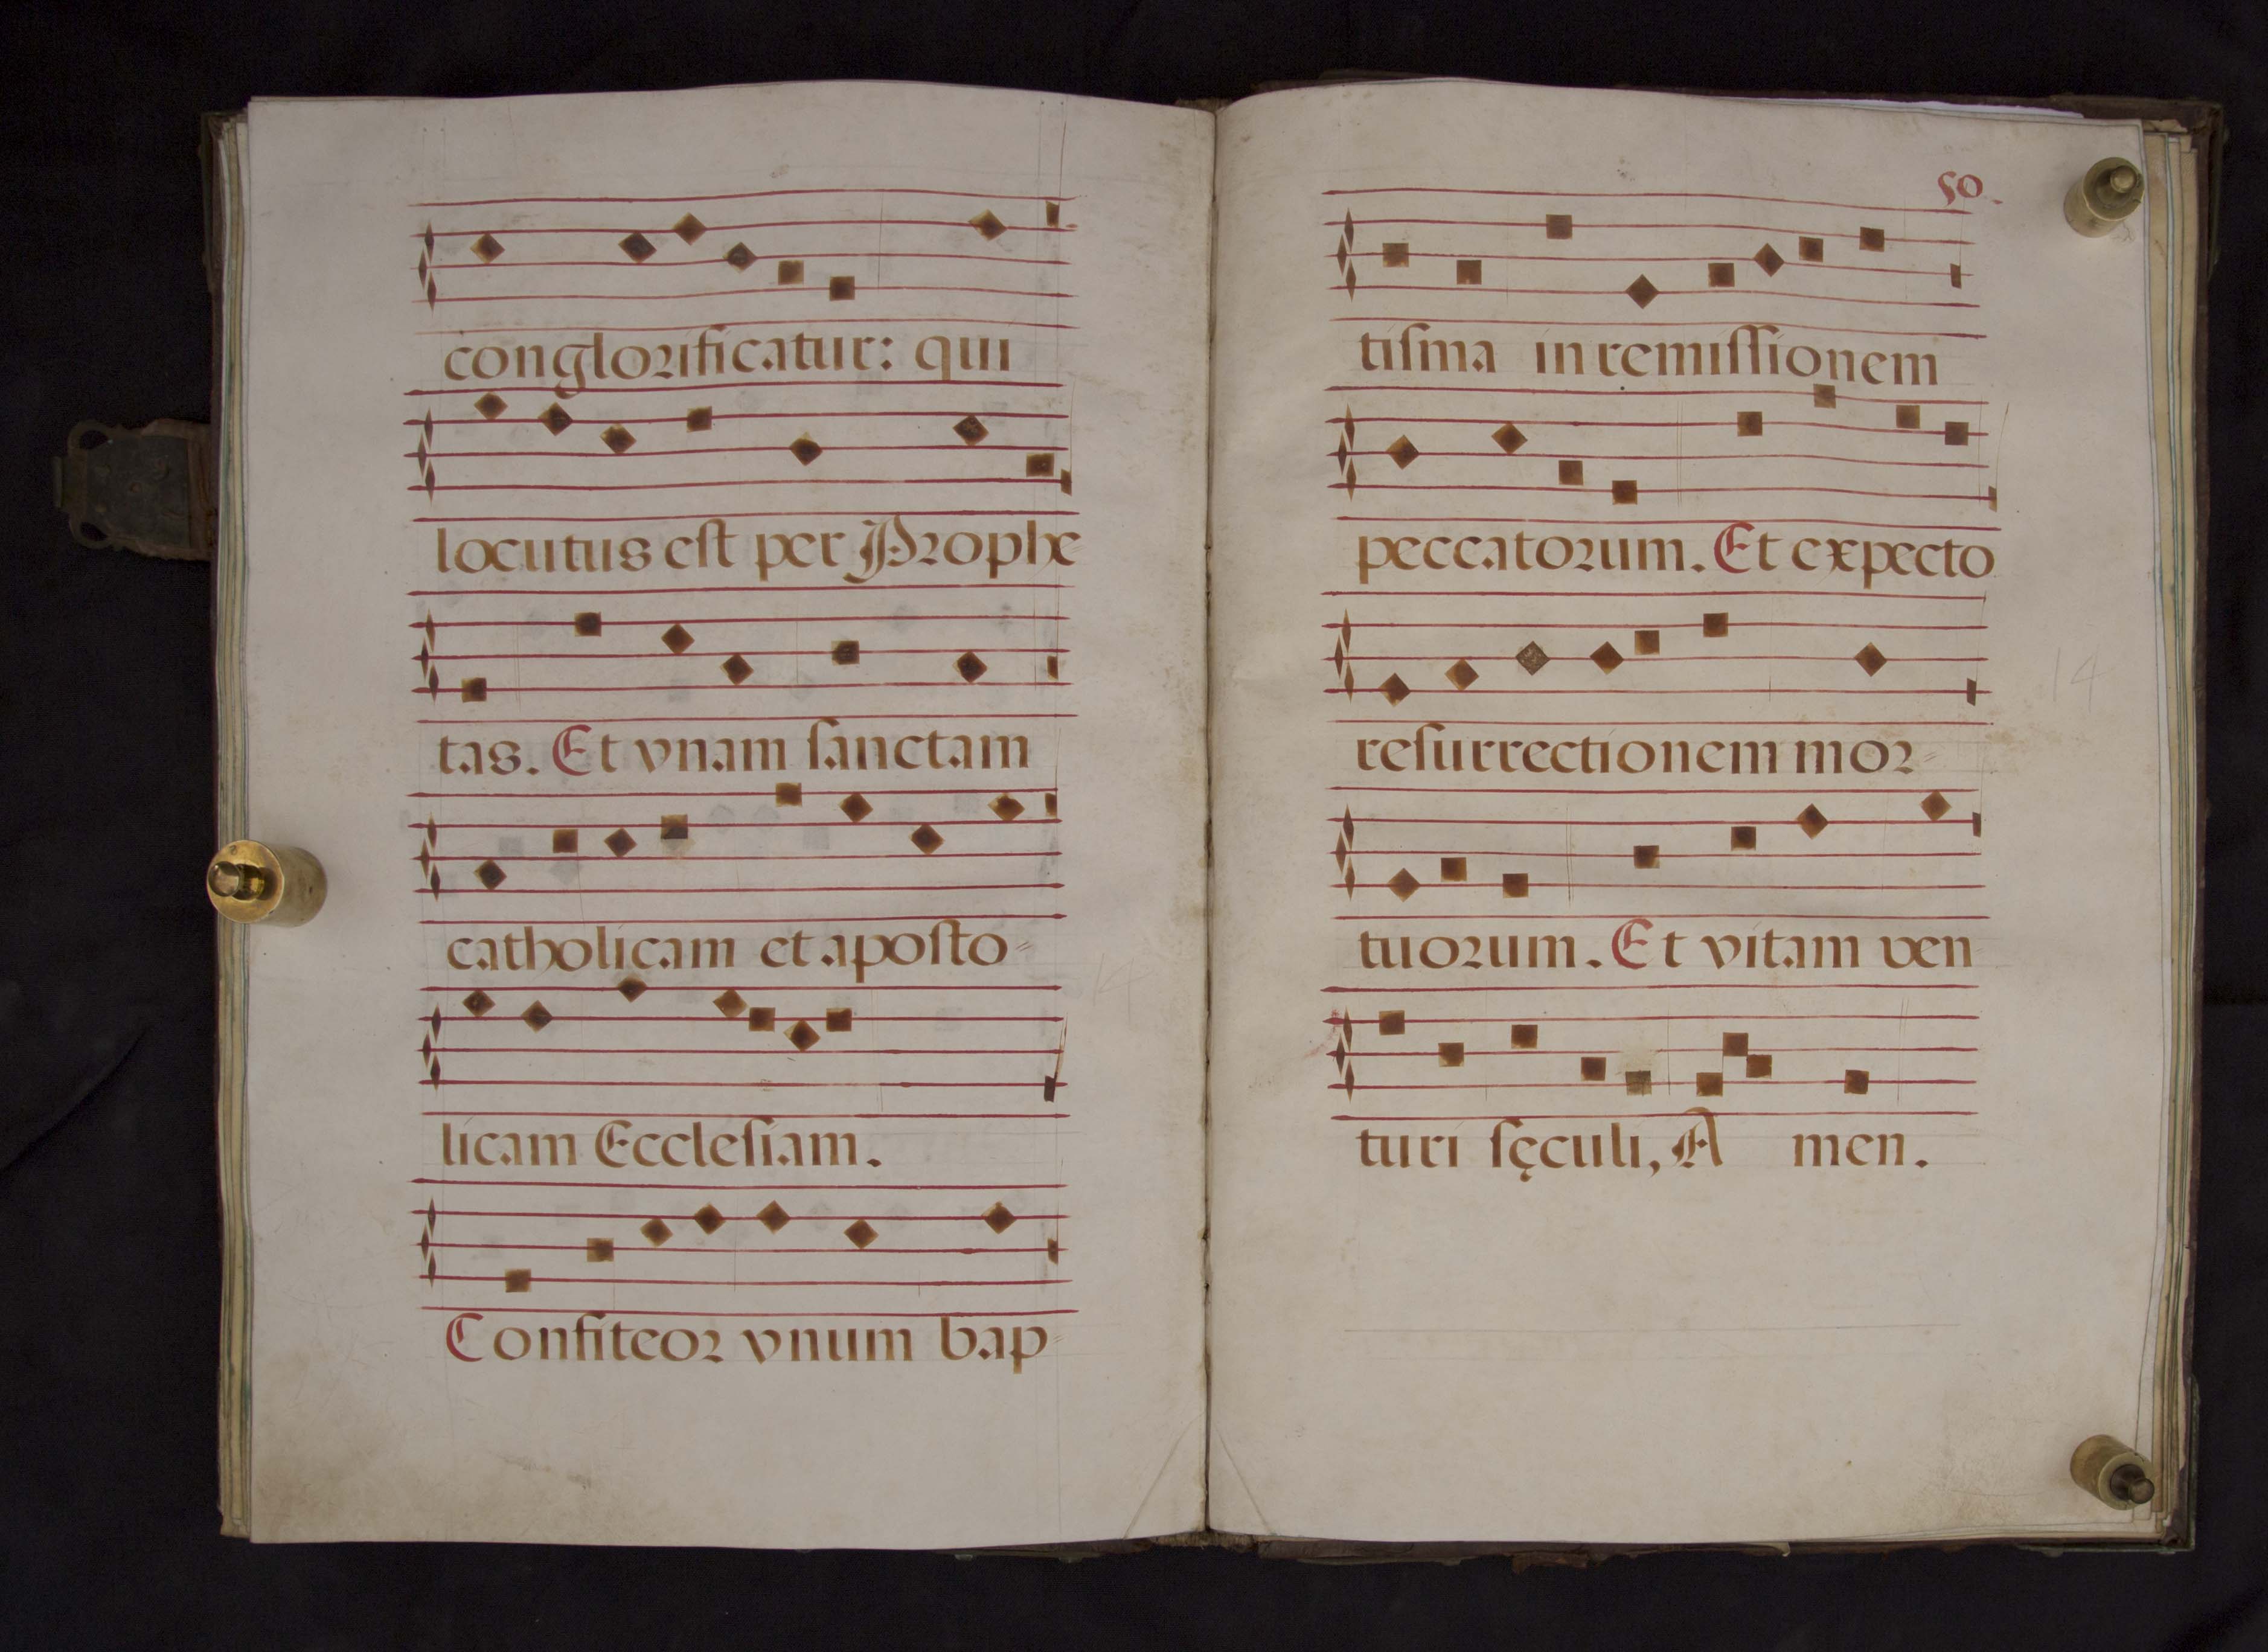 conglorificatur: qui
locutus est per Prophe
tas. Et vnam sanctam
catholicam et aposto=
licam Ecclesiam.
Confiteor vnum bap=
50.
tisma in remissionem
peccatorum. Et expecto
resurrectionem mor=
14
tuorum. Et vitam ven
turi sęculi, A men.